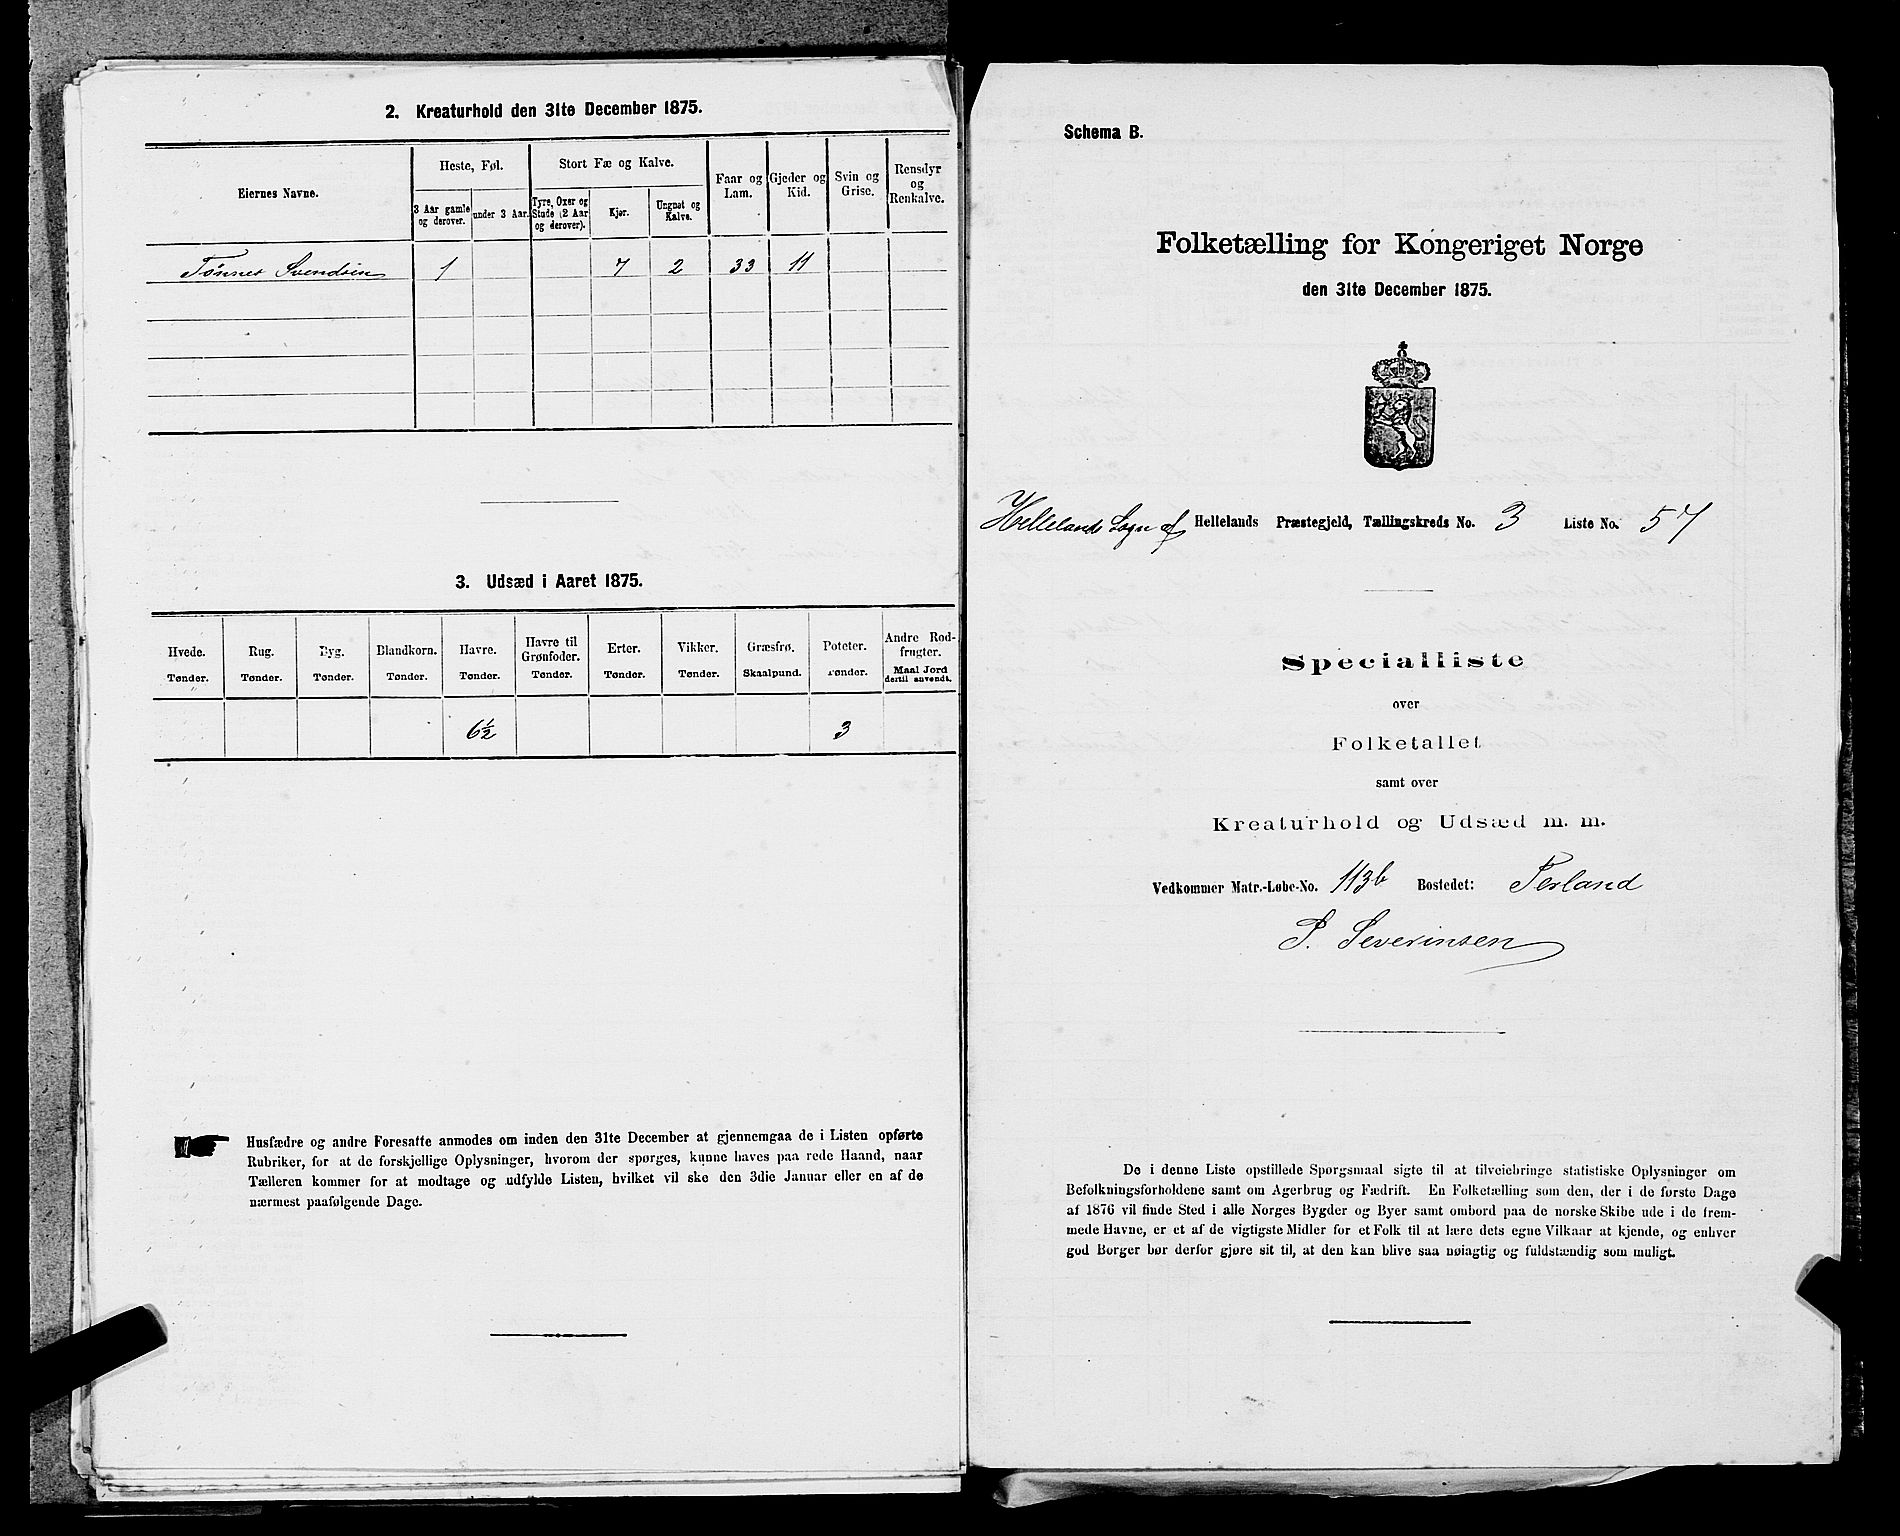 2. Kreaturhold den 31te December 1875.
Eiernes Navne.
Heste, Føl.
Stort Fæ og Kalve.
Faar og Lam.
Gjeder og Kid.
Svin og Grise.
Rensdyr og Renkalve.
3 Aar gamle og derover.
under 3 Aar.
Tyre, Oxer og Stude (2 Aar og derover).
Kjør.
Ungnøt og Kalve.
Tønnes Svendsen 1 7 2 33 11
3. Udsæd i Aaret 1875.
Hvede. Rug. Byg. Blandkorn. Havre. Havre til Grønfoder. Erter. Vikker. Græsfrø. Poteter. Andre Rodfrugter.
Tønder. Tønder. Tønder. Tønder. Tønder. Tønder. Tønder. Tønder. Skaalpund. Tønder. Maal Jord dertil anvendt.
6½ 3
Husfædre og andre Foresatte anmodes om inden den 31te December at gjennemgaa de i Listen opførte
Rubriker, for at de forskjellige Oplysninger, hvorom der spørges, kunne haves paa rede Haand, naar
Tælleren kommer for at modtage og udfylde Listen, hvilket vil ske den 3die Januar eller en af de
nærmest paafølgende Dage.
Schema B.
Folketælling for Kongeriget Norge
den 31te December 1875.
Hellelands Sogn af Hellelands Præstegjeld, Tællingskreds No. 3 Liste No. 57
Specialliste
over
Folketallet
samt over
Kreaturhold og Udsæd m. m.
Vedkommer Matr.-Løbe-No. 113b Bostedet: Terland
S. Severinsen
De i denne Liste opstillede Spørgsmaal sigte til at tilveiebringe statistiske Oplysninger om
Befolkningsforholdene samt om Agerbrug og Fædrift. En Folketælling som den, der i de første Dage
af 1876 vil finde Sted i alle Norges Bygder og Byer samt ombord paa de norske Skibe ude i de frem-
mede Havne, er et af de vigtigste Midler for et Folk til at lære dets egne Vilkaar at kjende, og enhver
god Borger bør derfor gjøre sit til, at den kan blive saa nøiagtig og fuldstændig som muligt.